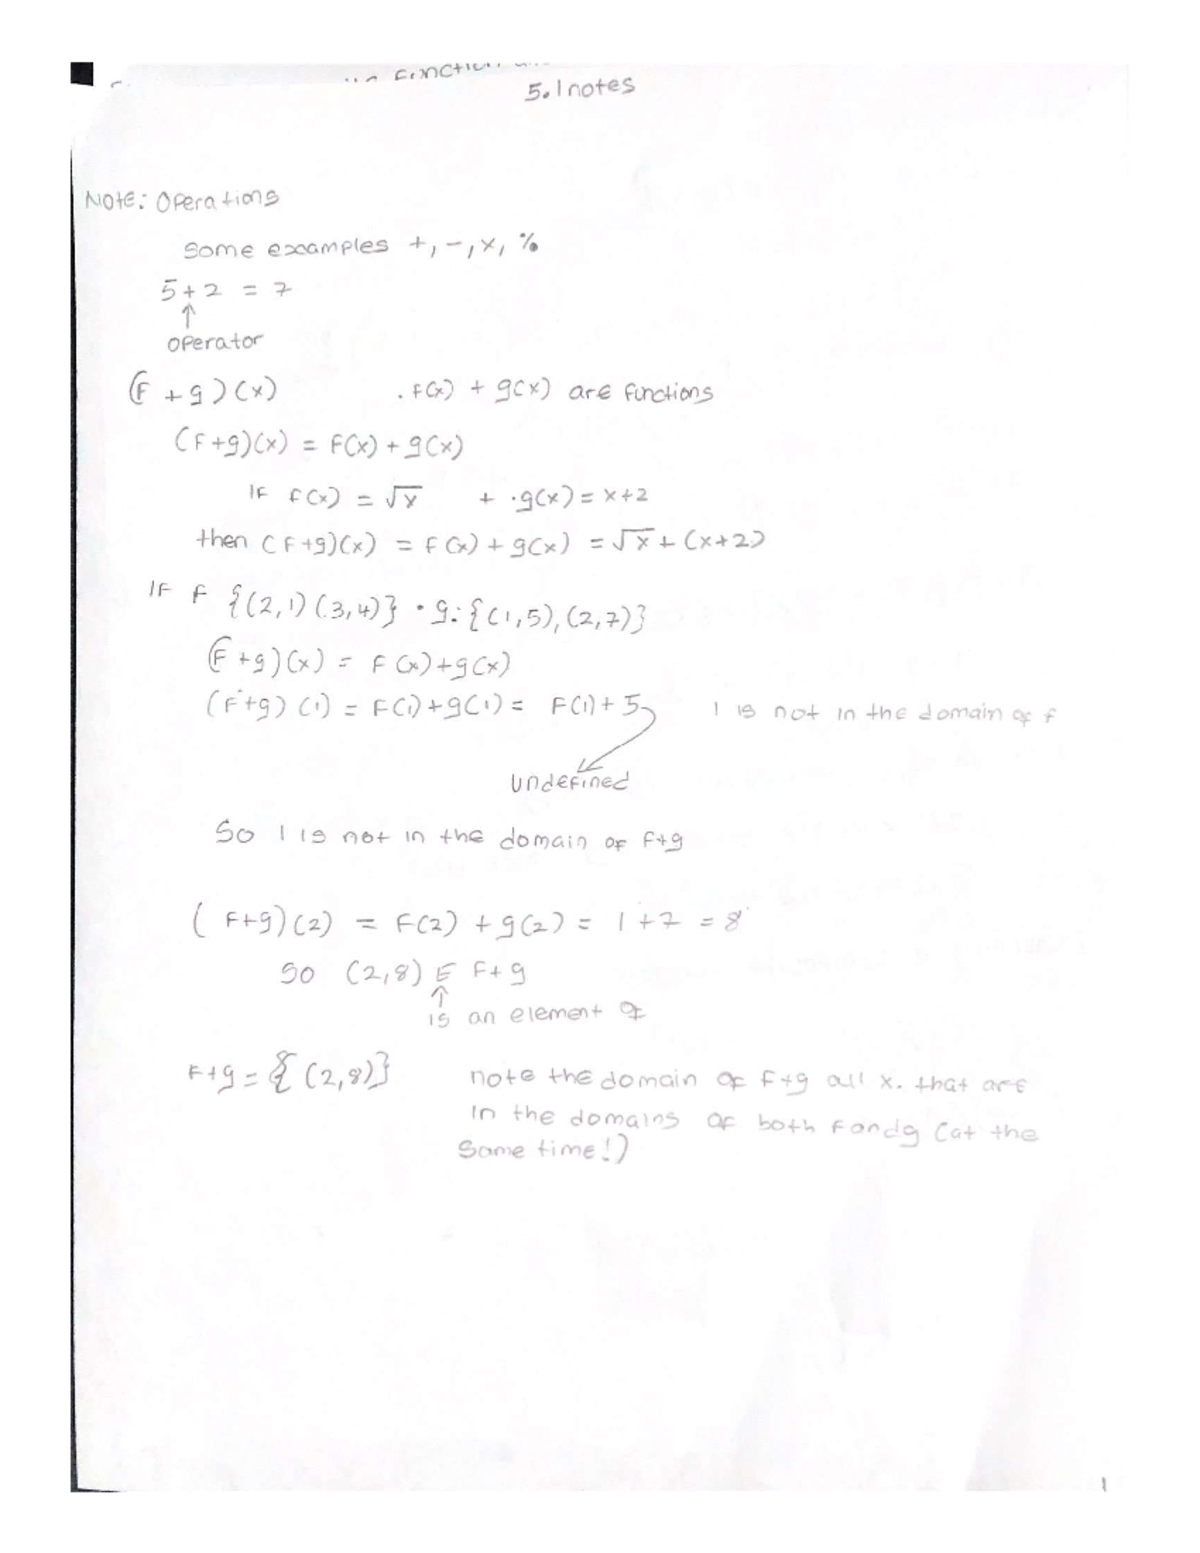 function
5.1 notes
Note: Operations
some examples +, -, x, %
5+2 = 7
↑
operator
(f + g)(x) . f(x) + g(x) are functions
(f+g)(x) = f(x) + g(x)
If f(x) = √x + · g(x) = x+2
then (f+g)(x) = f(x) + g(x) = √x + (x+2)
If f {(2,1)(3,4)} · g: {(1,5),(2,7)}
(f+g)(x) = f(x)+g(x)
(f+g)(1) = f(1)+g(1) = f(1)+5 1 is not in the domain of f
undefined
So 1 is not in the domain of f+g
(f+g)(2) = f(2) + g(2) = 1+7 = 8
so (2,8) ∈ f+g
↑
is an element of
f+g = {(2,8)} note the domain of f+g all x. that are
in the domains of both f and g (at the
same time!)
1